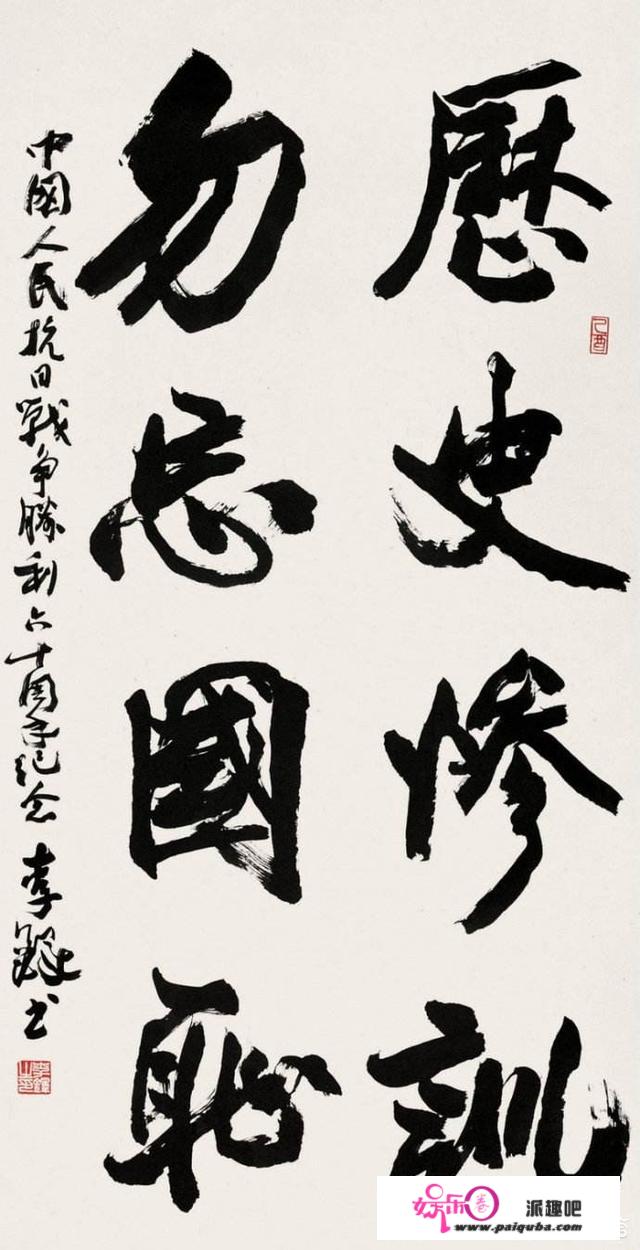 歷史慘訓
勿忘國恥
中國人民抗日戰争勝利六十周年纪念 李鐸书
己酉
娱乐圈 派趣吧
www.paiquba.com